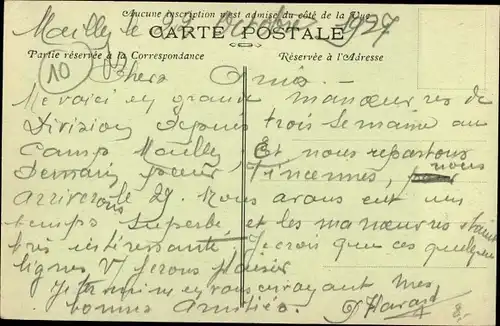 Aucune inscription n'est admise du côté de la Vue
Mailly le 22 Octobre 1927
CARTE POSTALE
Partie réservée à la Correspondance
Réservée à l'Adresse
10
Chers Amis. -
Me voici en grande manœuvres de
Division depuis trois semaine au
Camp Mailly. Et nous repartons
Demain pour Vincennes, nous
arriverons le 29. Nous avons eut un
temps superbe, et les manœuvres étaient
très intéressante. Je crois que ces quelques
lignes V ferons plaisir
Je termine en vous envoyant mes
bonnes Amitiés. Havard
8.-